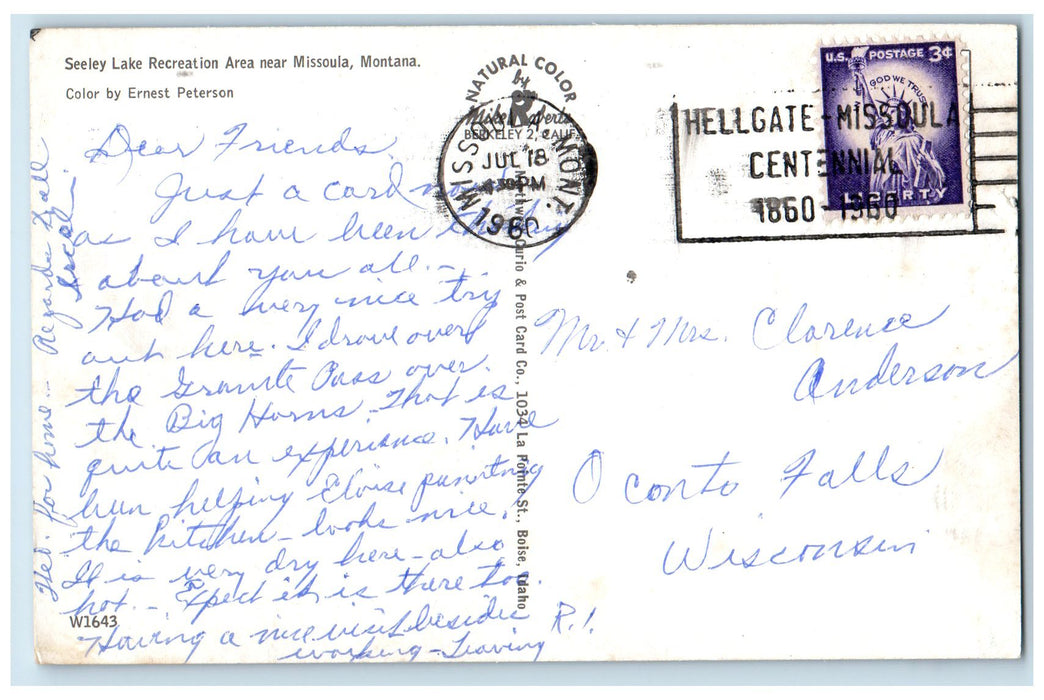 Seeley Lake Recreation Area near Missoula, Montana.
Color by Ernest Peterson
NATURAL COLOR
by
Mike Roberts
BERKELEY 2, CALIF.
MISSOULA MONT.
JUL 18
4 30 PM
1960
HELLGATE-MISSOULA
CENTENNIAL
1860-1960
U.S. POSTAGE 3¢
IN GOD WE TRUST
LIBERTY
Curio & Post Card Co., 1034 La Pointe St., Boise, Idaho
Dear Friends,
Just a card
as I have been thinking
about you all.-
Had a very nice trip
out here. I drove over
the Granite Pass over
the Big Horns. That is
quite an experience. Have
been helping Eloise painting
the kitchen - looks nice.
It is very dry here - also
hot. - Expect it is there too.
Having a nice visit besides
working - Leaving
Wed. for home. - Regards to all
Mr. & Mrs. Clarence
Anderson
Oconto Falls
Wisconsin
R.1.
W1643